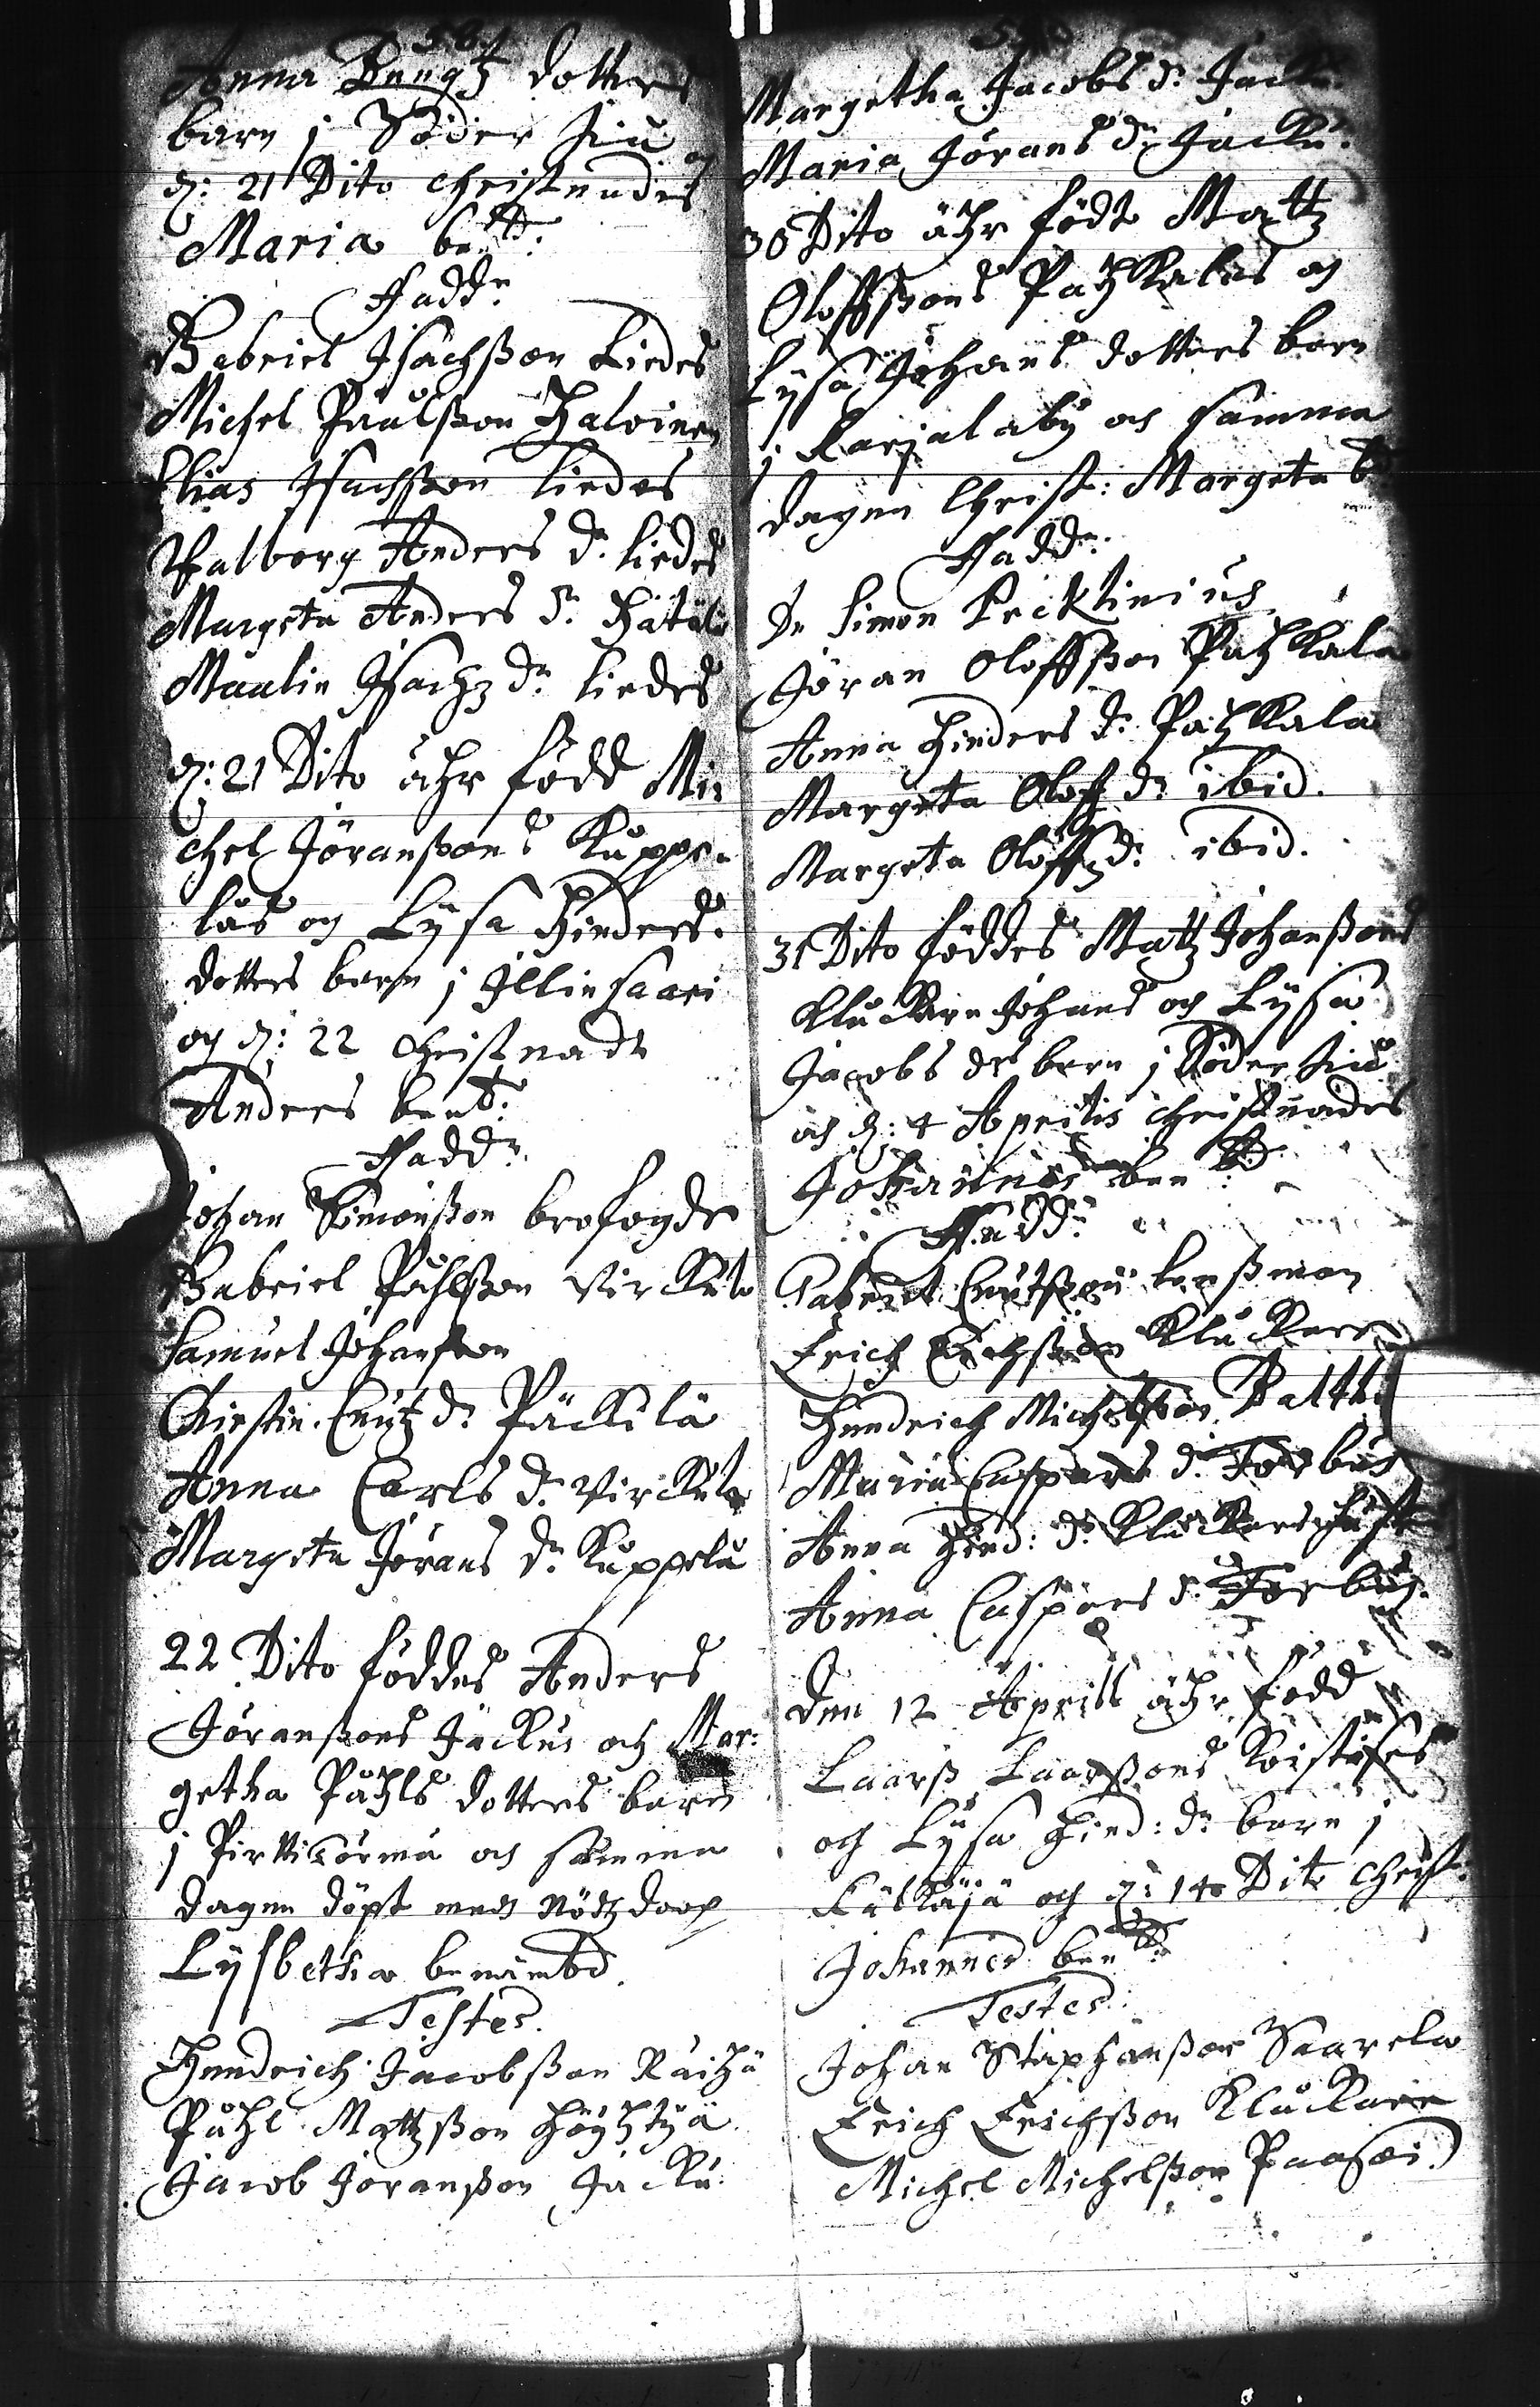 Anna Bengtz dotters
barn j Söder
d: 21 Dito christnades
Maria be:td:
Faddr
Gabriel Isachsson Liedes
Michel Påulsson Halvinen
Elias Isachsson Liedes
Valborg Anders dr Liedes
Margeta Anders dr
Maalin Isachz dr Liedes
d: 21 Dito ähr född Mi=
chel Jöranssons Kuppe=
las och Lysa Hinders
dotters barn j Illinsaari
och d: 22 christnadt
Anders bentd:
Faddr
Johan Simonsson brofogde
Gabriel Påhlsson Virkula
Samuel Johansson
Kirstin Cnutz dr Päckilä
Anna Carls dr Virkula
Margeta Jörans dr Kuppela
22 Dito föddes Anders
Jöranssons Jackus och Mar=
getha Påhls dotters barn
j och samma
dagen döpt med nödzdoop
Lysbetha benämbd
Testes.
Hendrich Jacobsson Raihä
Påhl Mattzsson Höyhtyä
Jacob Jöransson Jacku
Margetha Jacobs dr Jacku
Maria Jörans dr Jacku
30 Dito ähr födt Mattz
Oloffssons Patzkalas och
Lysa Johans dotters barn
j Karjalaby och samma
dagen Christ: Margeta
Faddr
Dn Simon
Jöran Oloffsson Patzkala
Anna Hinders dr Patzkala
Margeta Oloffz dr ibid.
Margeta Oloffz dr ibid.
31 Dito föddes Mattz Johanssons
Kluckare Johans och Lysa
Jacobs drs barn j Söder
och d: 4 Aprilis christnades
Johannes ben:td
Faddr
Gabriel Cnutsson Lenssman
Erich Erichsson Kluckare
Hendrich Michelsson
Maria Caspers dr Forbus
Anna Hind: dr Kluckars hust
Anna Caspers dr Forbus.
Den 12 Aprill ähr född
Laarss Laarssons
och Lysa Hind: dr barn j
och d: 14 Dito Christ:
Johannes ben:td
Testes:
Johan Staphansson Saarela
Erich Erichsson Kluckare
Michel Michelsson Paasoi